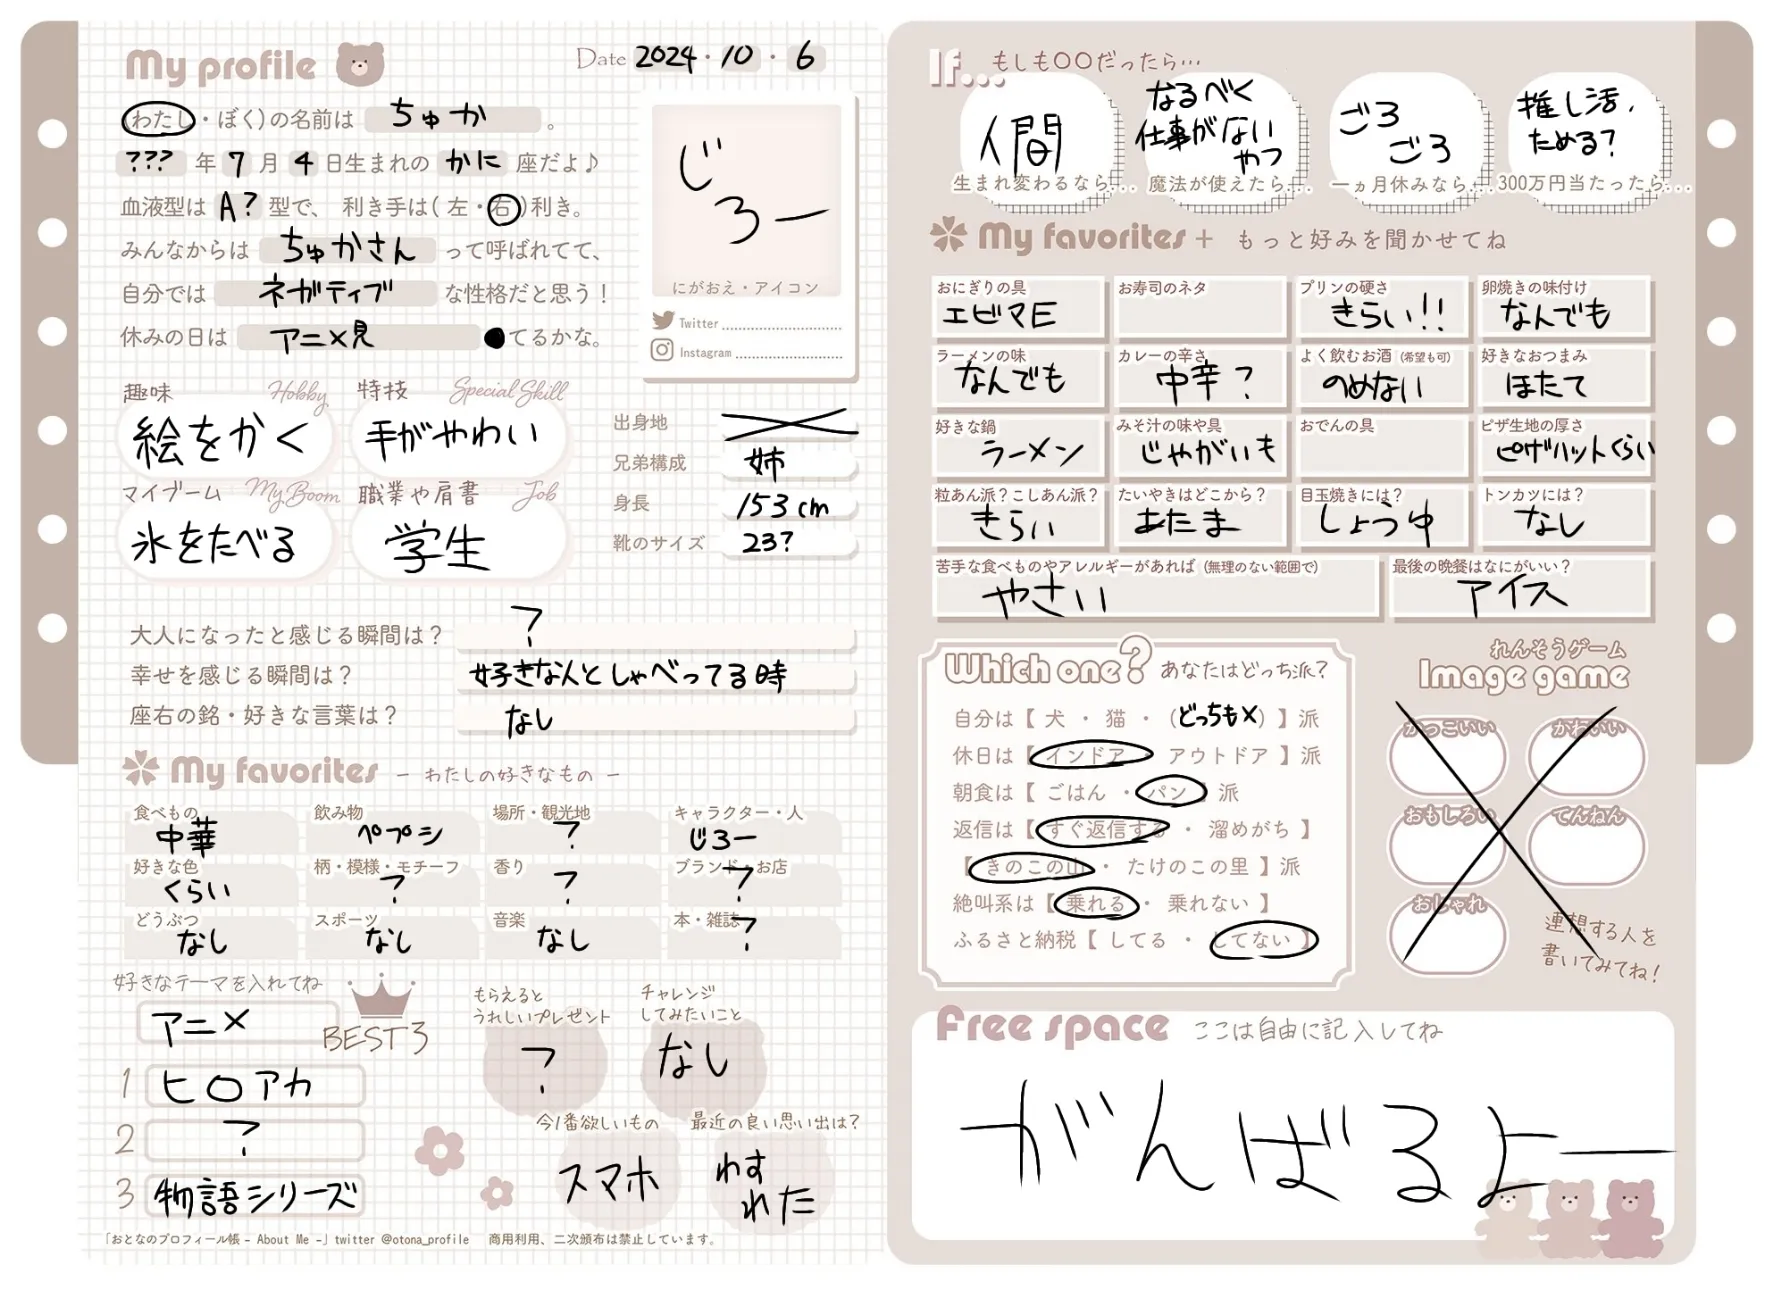 My profile
Date 2024・10・6
(わたし・ぼく)の名前は ちゅか 。
??? 年 7 月 4 日生まれの かに 座だよ♪
血液型は A? 型で、 利き手は(左・右)利き。
みんなからは ちゅかさん って呼ばれてて、
自分では ネガティブ な性格だと思う!
休みの日は アニメ見 ●てるかな。
じろー
にがおえ・アイコン
Twitter
Instagram
趣味 Hobby
絵をかく
特技 Special Skill
手がやわい
マイブーム My Boom
氷をたべる
職業や肩書 Job
学生
出身地
兄弟構成 姉
身長 153cm
靴のサイズ 23?
大人になったと感じる瞬間は? ?
幸せを感じる瞬間は? 好きな人としゃべってる時
座右の銘・好きな言葉は? なし
My favorites - わたしの好きなもの -
食べもの 中華
飲み物 ペプシ
場所・観光地 ?
キャラクター・人 じろー
好きな色 くらい
柄・模様・モチーフ ?
香り ?
ブランド・お店 ?
どうぶつ なし
スポーツ なし
音楽 なし
本・雑誌 ?
好きなテーマを入れてね
アニメ
BEST3
1 ヒロアカ
2 ?
3 物語シリーズ
もらえると
うれしいプレゼント
?
チャレンジ
してみたいこと
なし
今1番欲しいもの
スマホ
最近の良い思い出は?
わす
れた
「おとなのプロフィール帳 - About Me -」twitter @otona_profile 商用利用、二次頒布は禁止しています。
If... もしも〇〇だったら…
人間
生まれ変わるなら...
なるべく
仕事がない
やつ
魔法が使えたら...
ごろ
ごろ
一ヵ月休みなら...
推し活、
ためる?
300万円当たったら...
My favorites + もっと好みを聞かせてね
おにぎりの具 エビマヨ
お寿司のネタ
プリンの硬さ きらい!!
卵焼きの味付け なんでも
ラーメンの味 なんでも
カレーの辛さ 中辛?
よく飲むお酒(希望も可) のめない
好きなおつまみ ほたて
好きな鍋 ラーメン
みそ汁の味や具 じゃがいも
おでんの具
ピザ生地の厚さ ピザハットくらい
粒あん派?こしあん派? きらい
たいやきはどこから? あたま
目玉焼きには? しょうゆ
トンカツには? なし
苦手な食べものやアレルギーがあれば(無理のない範囲で) やさい
最後の晩餐はなにがいい? アイス
Which one? あなたはどっち派?
自分は【 犬 ・ 猫 ・ (どっちも×) 】派
休日は【 インドア ・ アウトドア 】派
朝食は【 ごはん ・ パン 】派
返信は【 すぐ返信する ・ 溜めがち 】
【 きのこの山 ・ たけのこの里 】派
絶叫系は【 乗れる ・ 乗れない 】
ふるさと納税【 してる ・ してない 】
れんそうゲーム
Image game
かっこいい
かわいい
おもしろい
てんねん
おしゃれ
連想する人を
書いてみてね!
Free space ここは自由に記入してね
がんばるよー